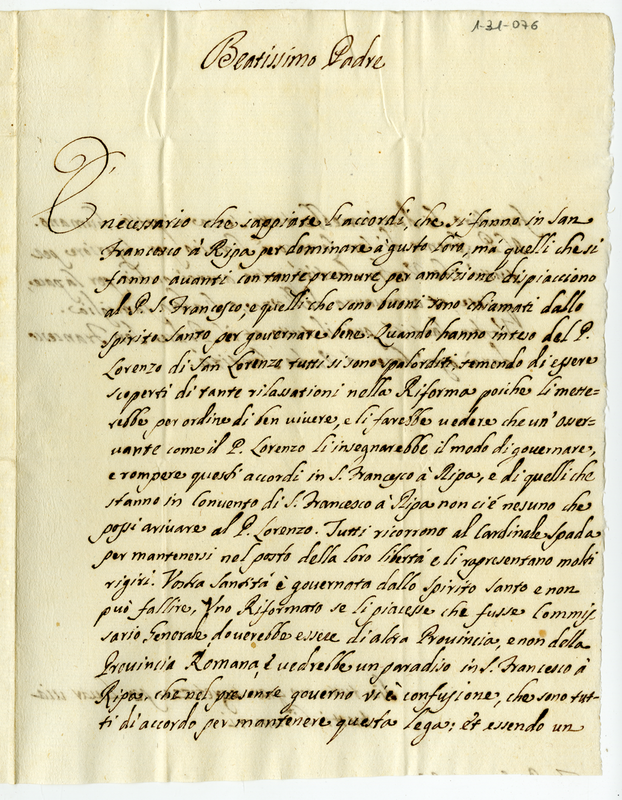 1-31-076
Beatissimo Padre
È necessario che sappiate l'accordi, che si fanno in San
Francesco à Ripa per dominare à gusto loro, mà quelli che si
fanno avanti con tante premure per ambizione dispiacciono
al P. S. Francesco, e quelli che sono buoni sono chiamati dallo
spirito santo per governare bene. Quando hanno inteso del P.
Lorenzo di San Lorenzo tutti si sono spalorditi, temendo di essere
scoperti di tante rilassationi nella Riforma poiche li mette=
rebbe per ordine di ben vivere, e li farebbe vedere che un'osser=
vante come il P. Lorenzo li insegnarebbe il modo di governare,
e rompere questi accordi in S. Francesco à Ripa, e di quelli che
stanno in Convento di S. Francesco à Ripa non ci è nesuno che
possi arivare al P. Lorenzo. Tutti ricorrono al Cardinale Spada
per mantenersi nel posto della loro libertà e li rapresentano molti
rigiri. Vostra Santità è governata dallo spirito santo e non
può fallire, Uno Riformato se li piacesse che fusse Commis=
sario Generale, doverebbe essere di altra Provincia, e non della
Provincia Romana, e vedrebbe un paradiso in S. Francesco à
Ripa. che nel presente governo vi è confusione, che sono tut=
ti di accordo per mantenere questa lega; et essendo un